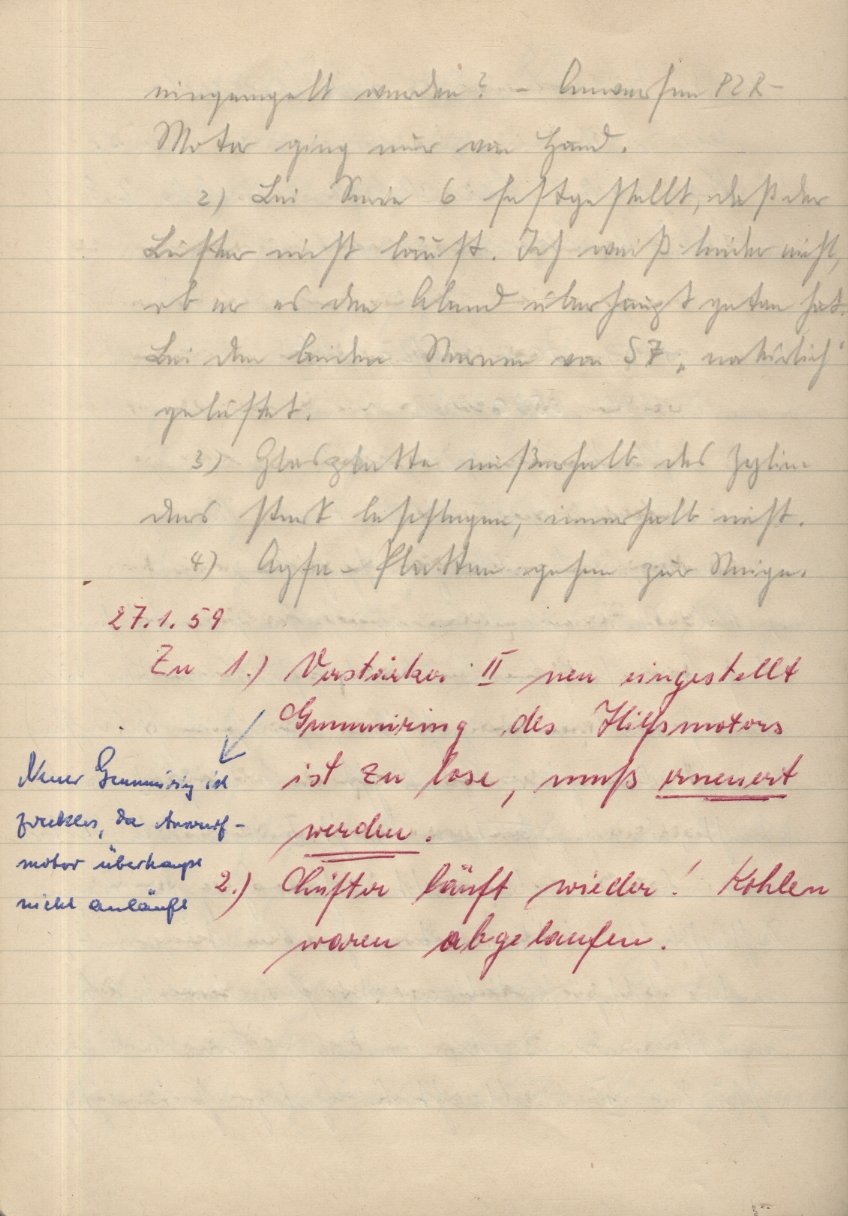 eingeregelt werden? – Anwerfen PZR-
Motor ging nur von Hand.
2) Bei Serie 6 festgestellt, daß der
Lüfter nicht läuft. Ich weiß leider nicht,
ob er es den Abend überhaupt getan hat.
Bei den beiden Sternen von S7 „natürlich"
gelüftet.
3) Glasplatte außerhalb des Zylin
ders stark beschlagen, innerhalb nicht.
4) Agfa-Platten gehen zur Neige.
27.1.59
Zu 1.) Verstärker II neu eingestellt
Gummiring des Hilfsmotors
ist zu lose, muß erneuert
werden.
Neuer Gummiring ist
zwecklos, da Anwurf-
motor überhaupt
nicht anläuft
2.) Lüfter läuft wieder! Kohlen
waren abgelaufen.